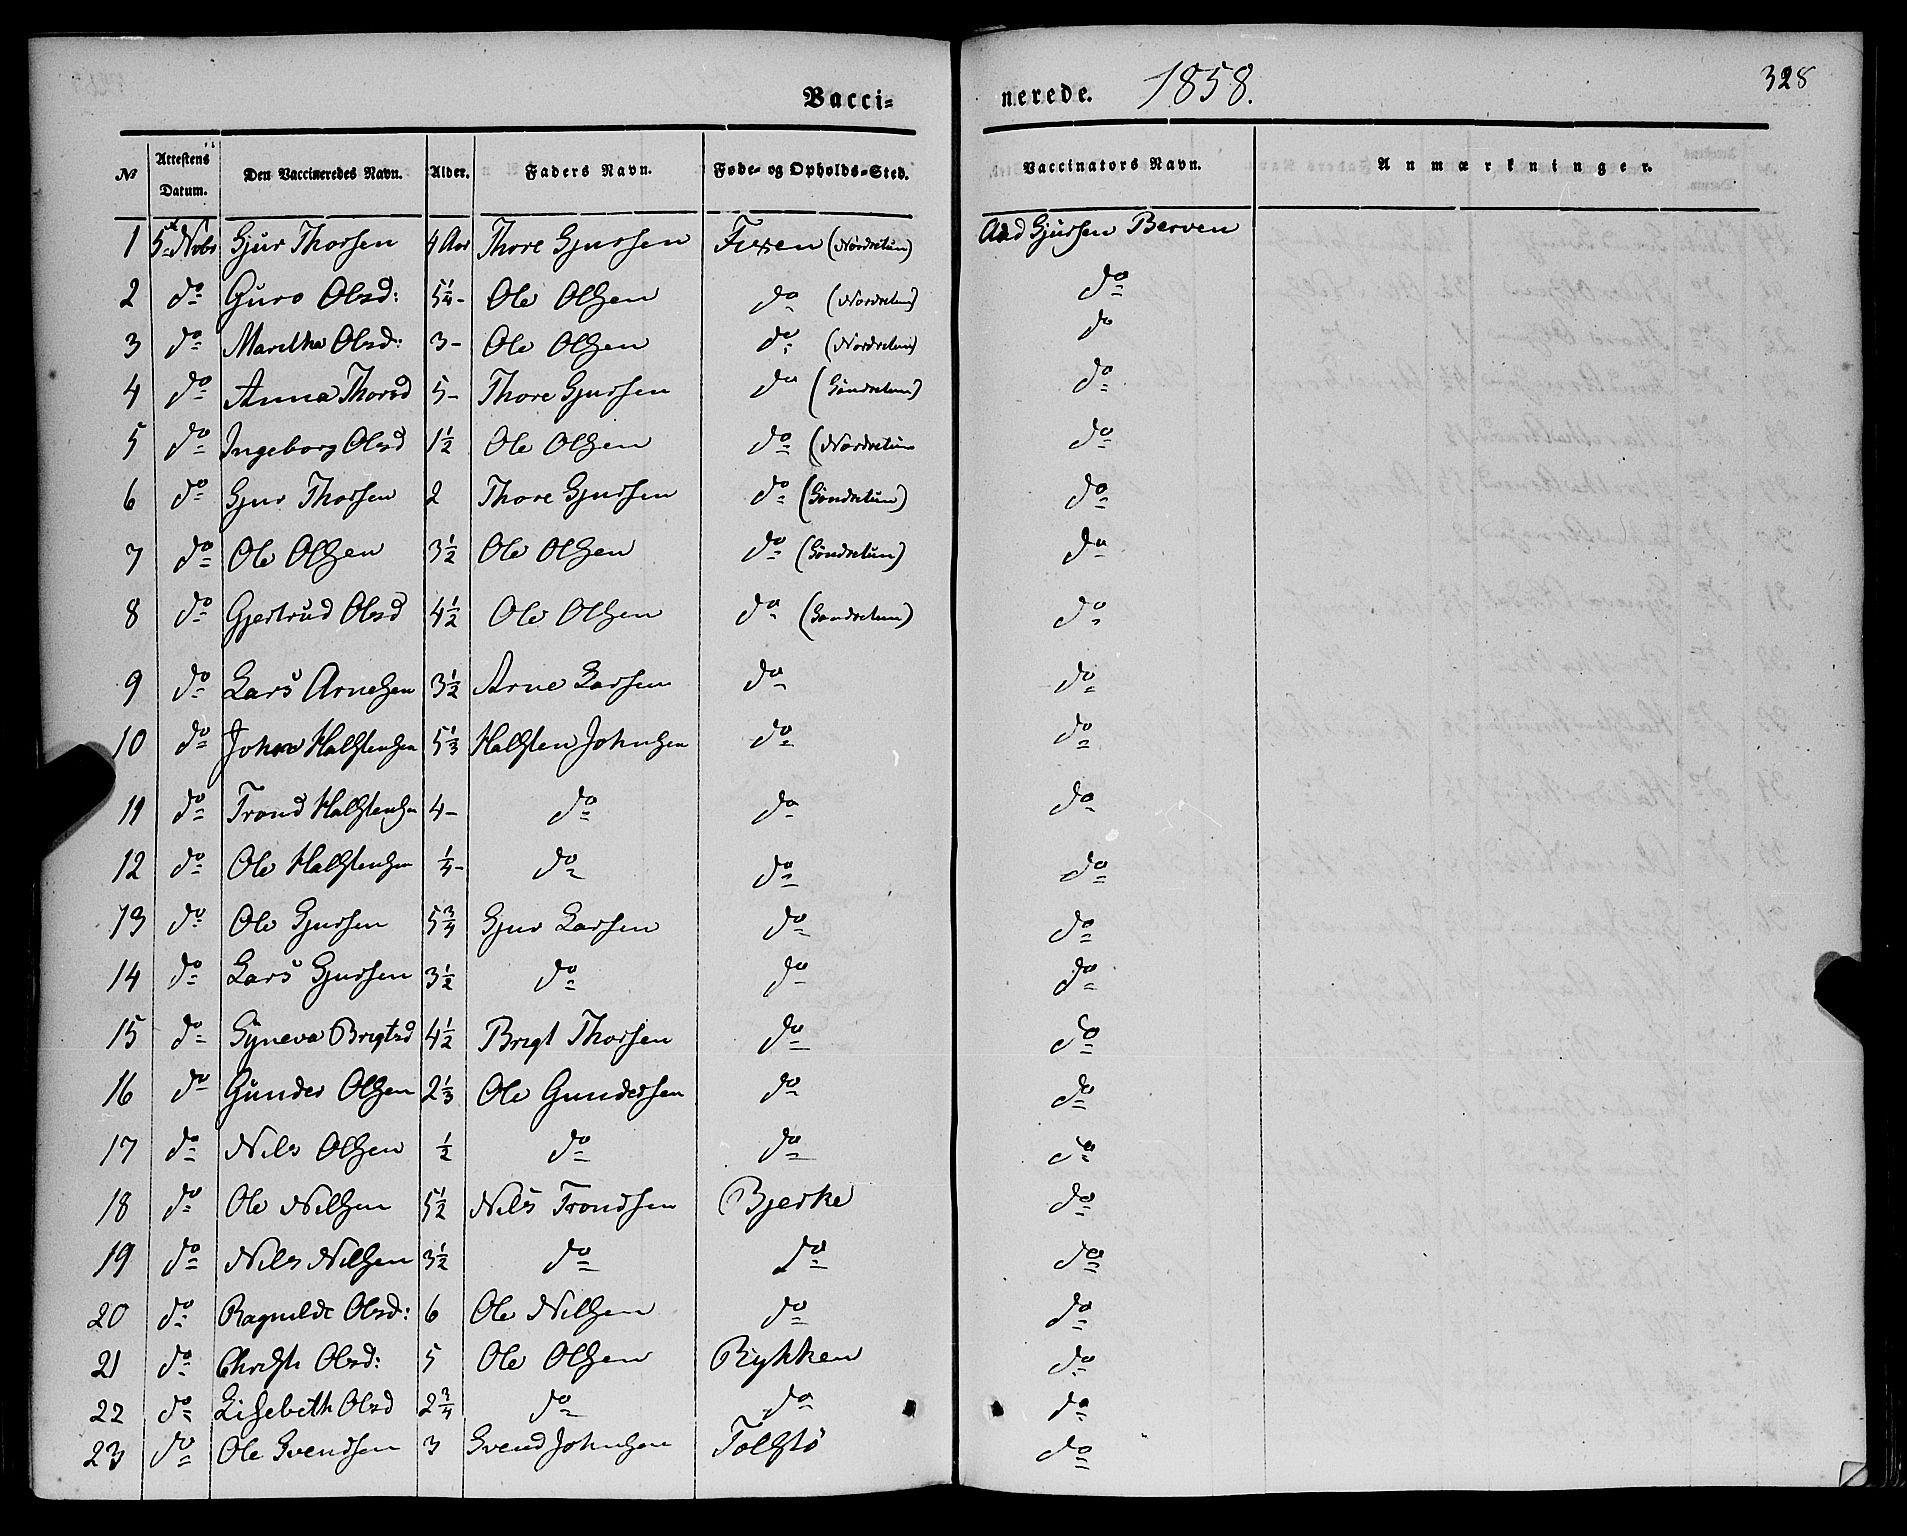 Vacci= nerede. 1858. 328
№ Attestens Datum. Den Vaccineredes Navn. Alder. Faders Navn. Føde- og Opholds-Sted. Vaccinators Navn. Anmærkninger.
1 5te Novbr Gjur Thorsen 4 Aar Thore Gjursen Fixen (Nordretun) Aad Gjursen Berven
2 do Guro Olsd: 5¼ - Ole Olsen do (Nordretun) do
3 do Maritha Olsd: 3 - Ole Olsen do (Nordretun) do
4 do Anna Thorsd 5 - Thore Gjursen do (Søndretun) do
5 do Ingeborg Olsd 1½ Ole Olsen do (Nordretun do
6 do Gjur Thorsen 2 Thore Gjursen do (Søndretun) do
7 do Ole Olsen 3½ Ole Olsen do (Søndretun) do
8 do Gjertrud Olsd 4½ Ole Olsen do (Søndretun) do
9 do Lars Arnesen 3½ Arne Larsen do do
10 do John Halstensen 5⅓ Halsten Johnsen do do
11 do Trond Halstensn 4 - do do do
12 do Ole Halstensen ¼ - do do do
13 do Ole Gjursen 5¾ Gjur Larsen do do
14 do Lars Gjursen 3½ do do do
15 do Syneva Brigtsd 4½ Brigt Thorsen do do
16 do Gunder Olsen 2⅓ Ole Gundersen do do
17 do Nils Olsen ½ do do do
18 do Ole Nilsen 5½ Nils Trondsen Bjerke do
19 do Nils Nilsen 3½ do do do
20 do Ragnilde Olsd: 6 Ole Nilsen do do
21 do Christi Olsd: 5 Ole Olsen Rykken do
22 do Lisebeth Olsd 2¾ do do do
23 do Ole Svendsen 3 Svend Johnsen Tolstø do